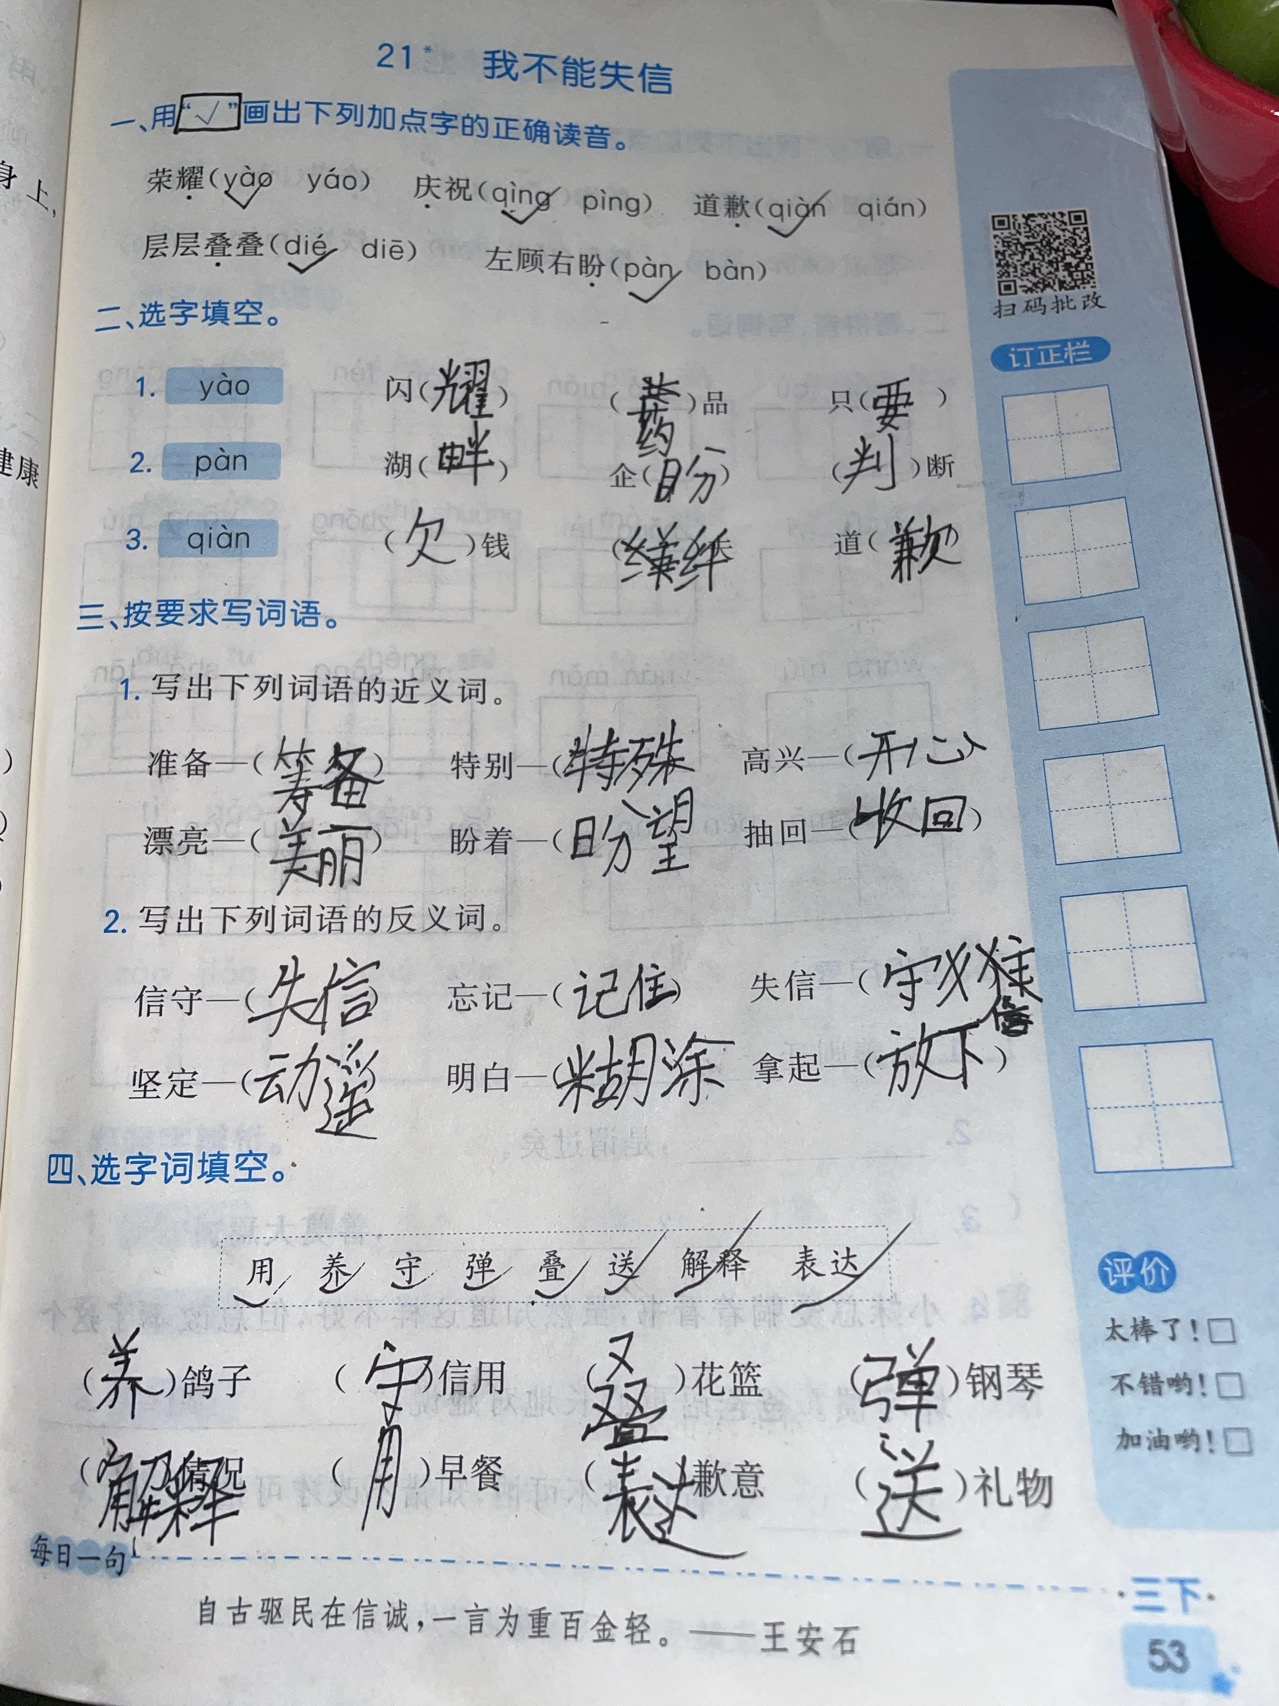 21* 我不能失信
一、用“√”画出下列加点字的正确读音。
荣耀(yào yáo) 庆祝(qìng pìng) 道歉(qiàn qián)
层层叠叠(dié diē) 左顾右盼(pàn bàn)
扫码批改
二、选字填空。
订正栏
1. yào 闪(耀) (药)品 只(要)
2. pàn 湖(畔) 企(盼) (判)断
3. qiàn (欠)钱 (纤)夫 道(歉)
三、按要求写词语。
1. 写出下列词语的近义词。
准备—(筹备) 特别—(特殊) 高兴—(开心)
漂亮—(美丽) 盼着—(盼望) 抽回—(收回)
2. 写出下列词语的反义词。
信守—(失信) 忘记—(记住) 失信—(守信
坚定—(动遥 明白—(糊涂 拿起—(放下)
四、选字词填空。
用 养 守 弹 叠 送 解释 表达
评价
太棒了!□
(养)鸽子 (守)信用 (叠)花篮 (弹)钢琴
不错哟!□
加油哟!□
(解释)情况 (用)早餐 (表达)歉意 (送)礼物
每日一句
自古驱民在信诚,一言为重百金轻。——王安石
·三下·
53